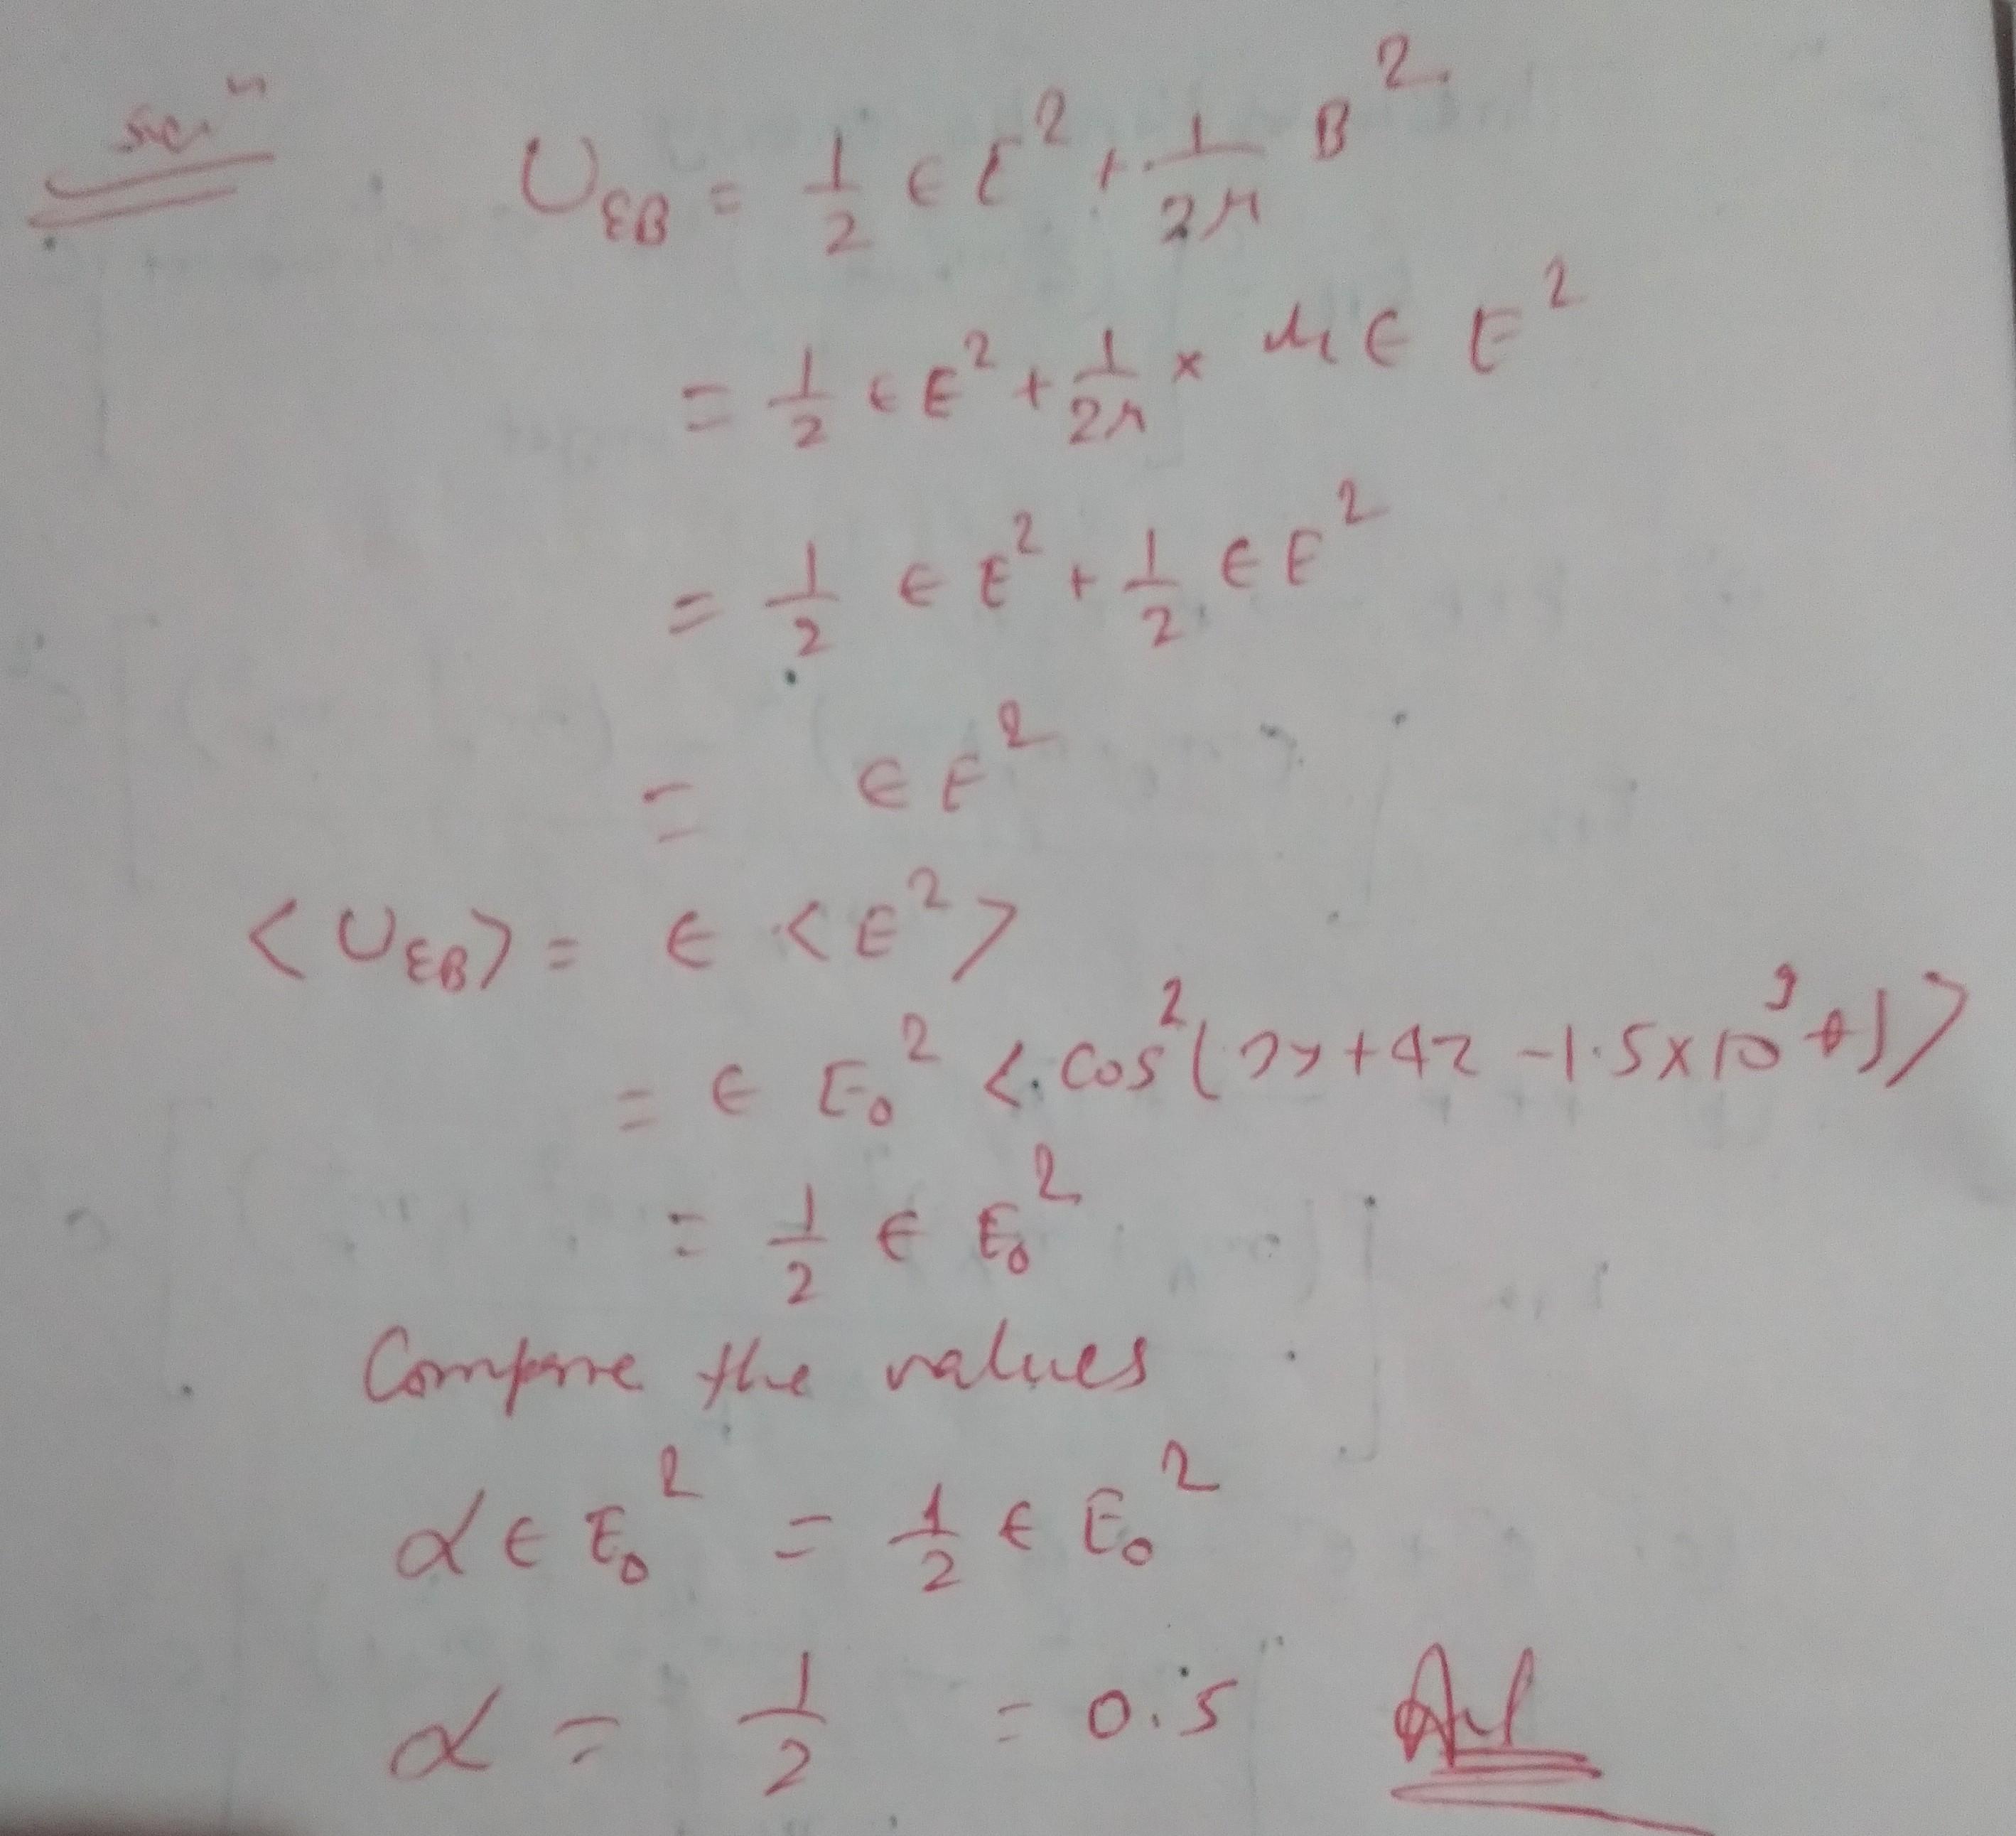 Solⁿ
U_EB = 1/2 ∈ E² + 1/2μ B²
= 1/2 ∈ E² + 1/2μ × μ ∈ E²
= 1/2 ∈ E² + 1/2 ∈ E²
= ∈ E²
<U_EB> = ∈ <E²>
= ∈ E₀² <cos²(3y + 4z - 1.5 × 10⁹ t)>
= 1/2 ∈ E₀²
Compare the values
α ∈ E₀² = 1/2 ∈ E₀²
α = 1/2 = 0.5 Ans